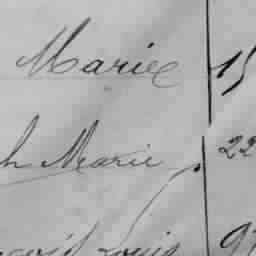 Marie 15
h Marie 22
Louis 9